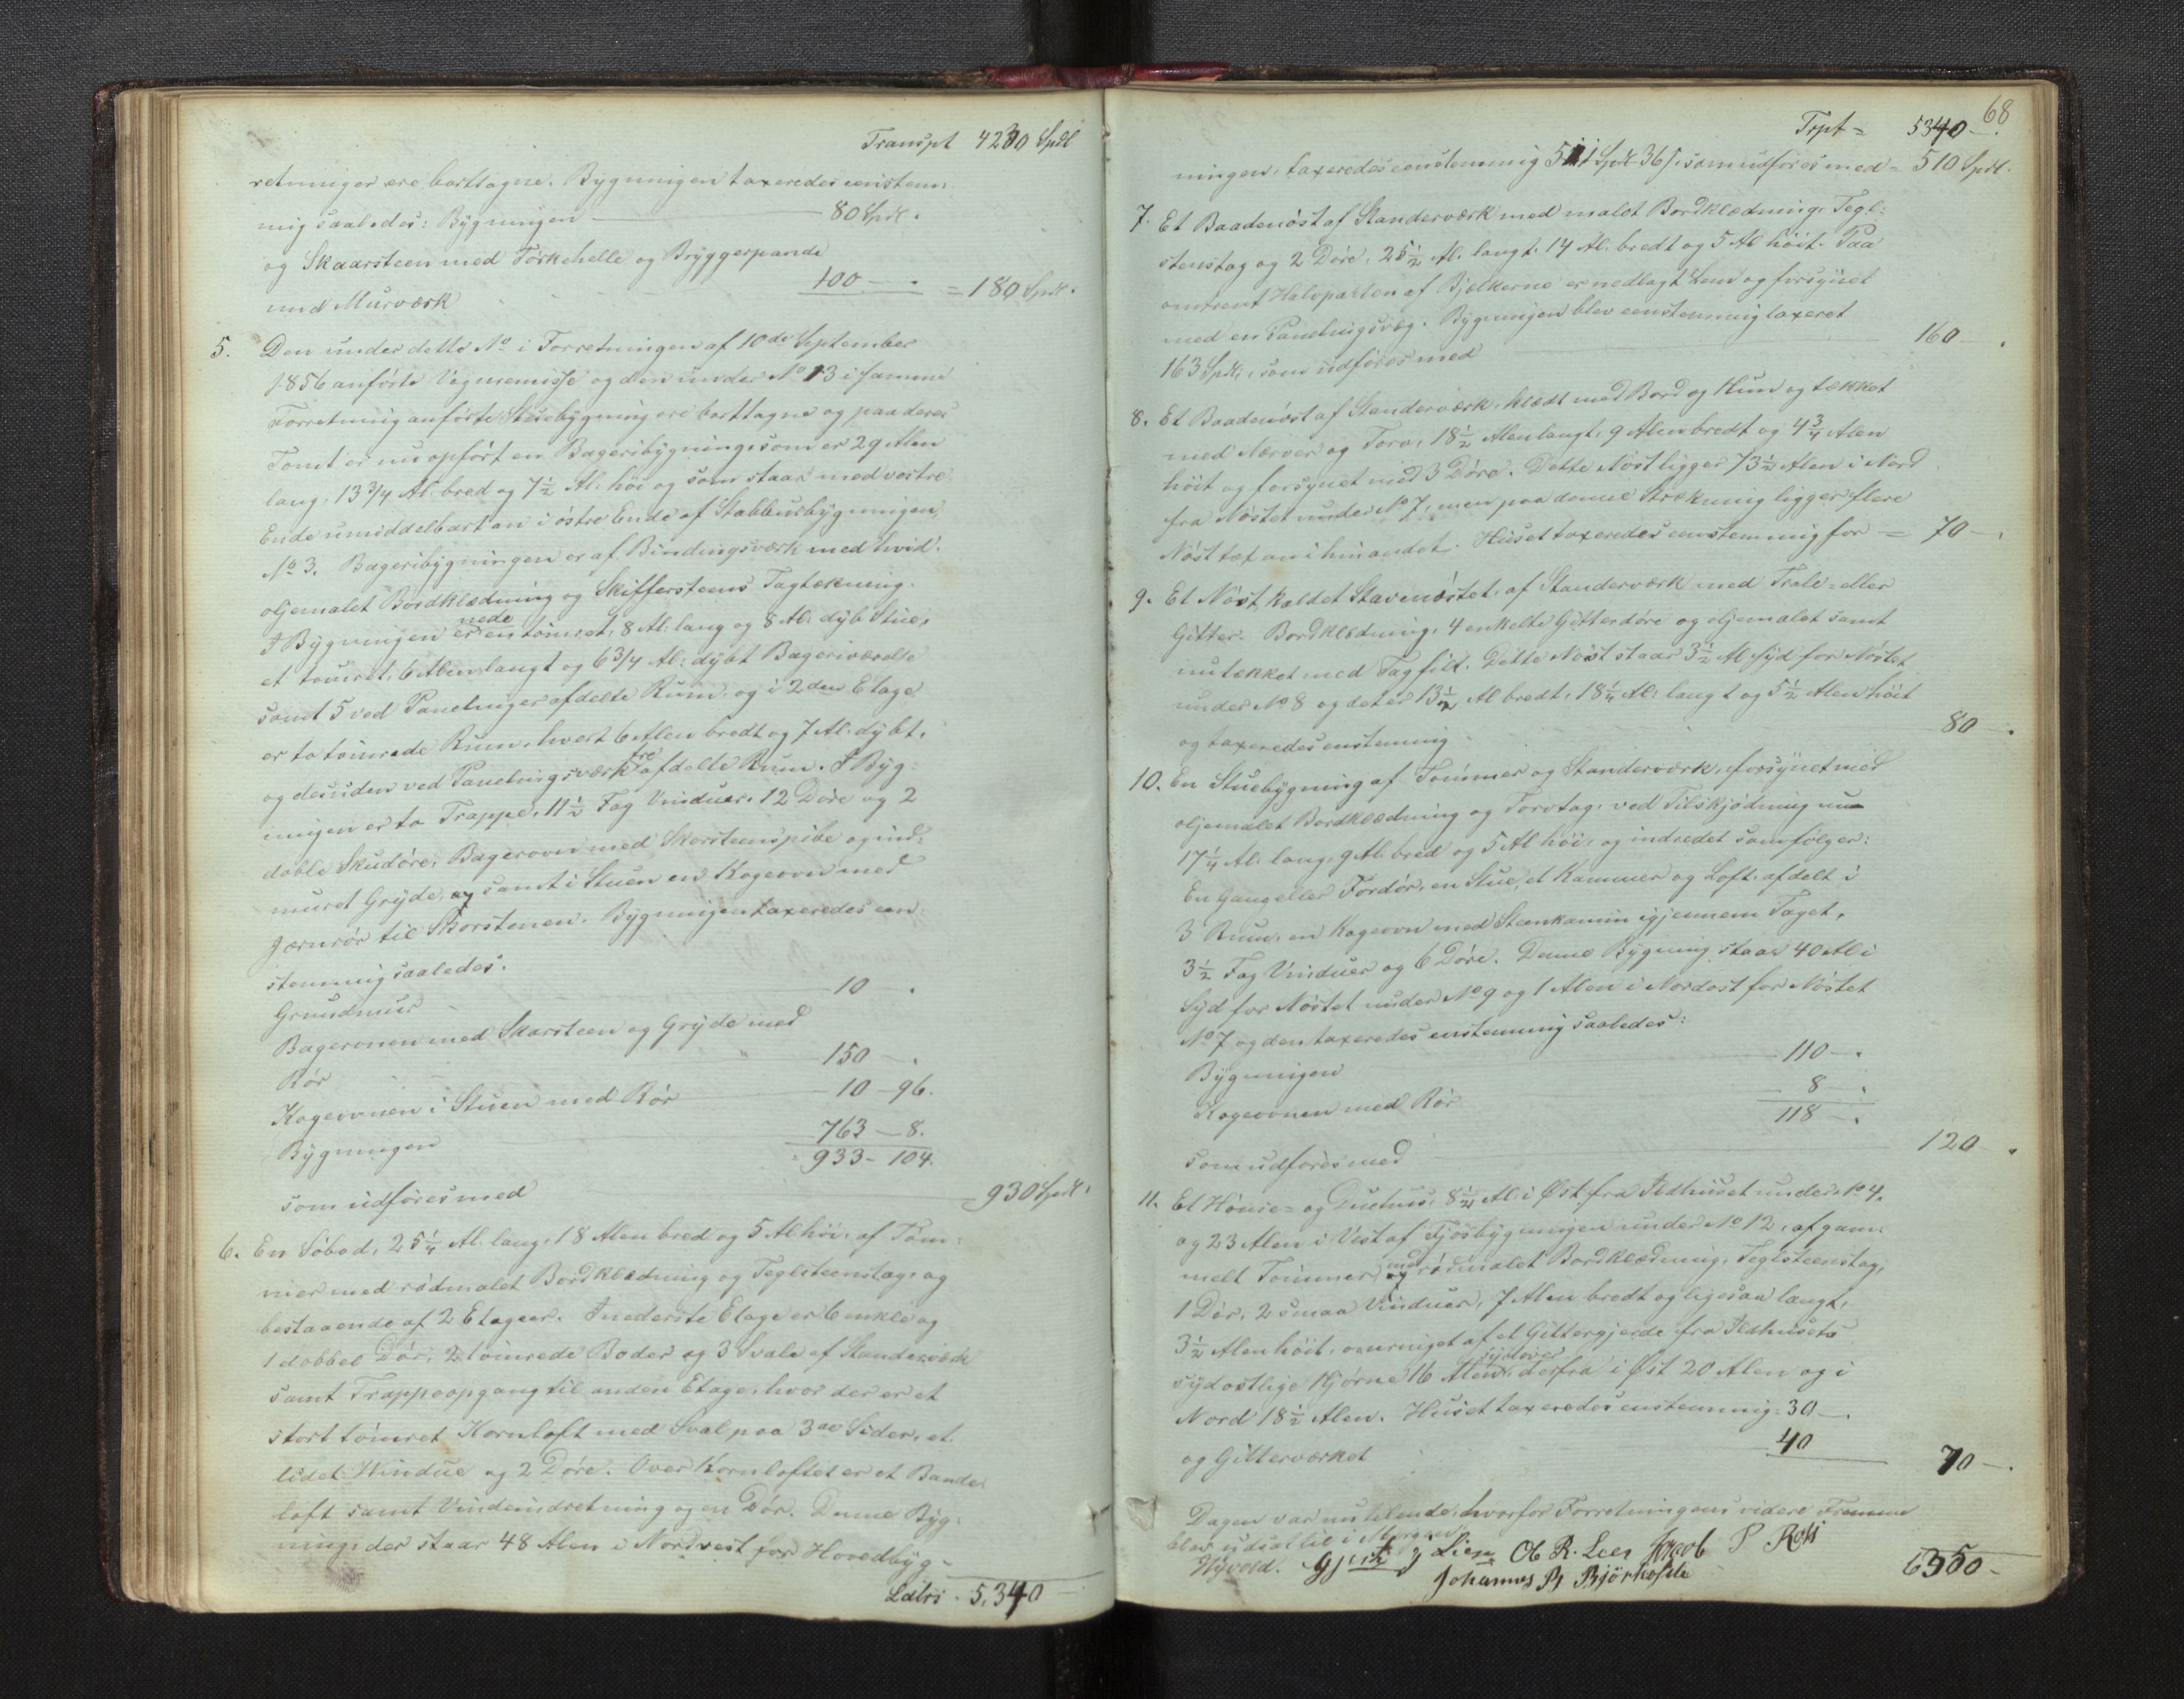 Transpt 4230 Spdl
retninger ere borttagne. Bygningen taxeredes eenstem-
mig saaledes: Bygningen — 80 Spdl.
og Skaarsteen med Törkehelle og Bryggerpande
med Murværk 100 — . = 180 Spdl.
5. Den under dette No i Forretningen af 10de September
1856 anförte Vognremisse og den under No 13 i samme
Forretning anförte Stuebygning ere borttagne og paa deres
Tomt er nu opfört en Bageribygning, som er 29 Alen
lang, 13 3/4 Al. bred og 7 1/2 Al. höi og som staar med vestre
Ende umiddelbart an i östre Ende af Stabbursbygningen,
No 3. Bageribygningen er af Bindingsværk med hvid-
oljemalet Bordklædning og Skiffersteens Tagtækning.
I Bygningen er nede en tömret, 8 Al. lang og 8 Al. dyb Stue,
et tömret, 6 Alen langt og 6 3/4 Al: dybt Bageriværelse
samt 5 ved Panelinger afdelte Rum, og i 2den Etage
er to tömrede Rum, hvert 6 Alen bredt og 7 Al. dybt,
og desuden ved Panelingsværk tre afdelte Rum. I Byg-
ningen er to Trappe, 11 1/2 Fag Vinduer, 12 Döre og 2
doble Skudöre, Bagerovn med Skorsteenspibe og ind-
muret Gryde, og samt i Stuen en Kogeovn med
Jernrör til Skorstenen. Bygningen taxeredes een-
stemmig saaledes.
Grundmur — 10 — .
Bagerovnen med Skarsteen og Gryde med
Rör 150 — .
Kogeovnen i Stuen med Rör — 10 — 96.
Bygningen 763 — 8.
933 — 104.
som udföres med = 930 Spdl.
6. En Söbod, 25 1/4 Al. lang, 18 Alen bred og 5 Al. höi, af Töm-
mer med rödmalet Bordklædning og Teglsteenstag, og
bestaaende af 2 Etager. I nederste Etage er 6 enkle og
1 dobbel Dör, 2 tömrede Boder og 3 Svale af Standerværk
samt Trappeopgang til anden Etage, hvor der er et
stort tömret Kornloft med Sval paa 3de Sider, et
lidet Windue og 2 Döre. Over Kornloftet er et Bande-
loft samt Vindeindretning og en Dör. Denne Byg-
ning, der staar 48 Alen i Nordvest for Hovedbyg-
Latri . 5,340 —
68
Trpt = 5340 — .
ningen, taxeredes eenstemmig 511 Spdl 36 s, som udföres med = 510 Spdl.
7. Et Baadenöst af Standerværk med malet Bordklædning, Tegl-
stenstag og 2 Döre, 25 1/2 Al. langt, 14 Al. bredt og 5 Al höit. Paa
omtrent Halvparten af Bjelkerne er nedlagt Lem og forsynet
med en Panelingsvæg. Bygningen blev eenstemmig taxeret
163 Spdl., som udföres med 160 — .
8. Et Baadenöst af Standerværk, klædt med Bord og Hun og tækket
med Næver og Torv, 18 1/2 Alen langt, 9 Alen bredt og 4 3/4 Alen
höit og forsynet med 3 Döre. Dette Nöst ligger 73 1/2 Alen i Nord
fra Nöstet under No 7, men paa denne Strækning ligger flere
Nöst tæt an i hinandet. Huset taxeredes eenstemmig for = 70 — .
9. Et Nöst, kaldet Stavenöstet, af Standerværk med Trale- eller
Gitter- Bordklædning, 4 enkelte Gitterdöre og oljemalet samt
nu tækket med Tagfild. Dette Nöst staar 3 1/2 Al. Syd for Nöstet
under No 8 og det er 13 1/2 Al bredt, 18 1/4 Al. langt og 5 1/2 Alen höit
og taxeredes enstemmig 80 — .
10. En Stuebygning af Tömmer og Standerværk, forsynet med
oljemalet Bordklædning og Torvtag, ved Tilskjödning nu
17 1/4 Al. lang, 9 Al. bred og 5 Al höi, og indredet som fölger:
En Gang eller Fordör, en Stue, et Kammer og Loft afdelt i
3 Rum, en Kogeovn med Steenkamin igjennem Taget,
3 1/2 Fag Vinduer og 6 Döre. Denne Bygning staar 40 Al i
Syd for Nöstet under No 9 og 1 Alen i Nordost for Nöstet
No 7 og den taxeredes enstemmig saaledes:
Bygningen 110 — .
Kogeovnen med Rör 8 — .
118 — .
som udföres med 120 .
11. Et Hönse- og Duehus, 8 1/2 Al. i Øst fra Ildhuset under No 4,
og 23 Alen i Vest af Fjösbygningen under No 12, af gam-
melt Tömmer, og med rödmalet Bordklædning, Teglsteenstag,
1 Dör, 2 smaa Vinduer, 7 Alen bredt og ligesaa langt,
3 1/2 Alen höit, omringet af et Gittergjerde fra Ildhusets
sydostlige Hjörne 16 Alen sydover, derfra i Øst 20 Alen og i
Nord 18 1/2 Alen. Huset taxeredes enstemmig: 30 — .
og Gitterværket 40 70 — .
Dagen var nu tilende, hvorfor Forretningens videre Fremme
blev udsat til i Morgen.
Hyvold. Lien Ob R. Leen Jacob P Roti
Johannes P Björkelste
6350 —